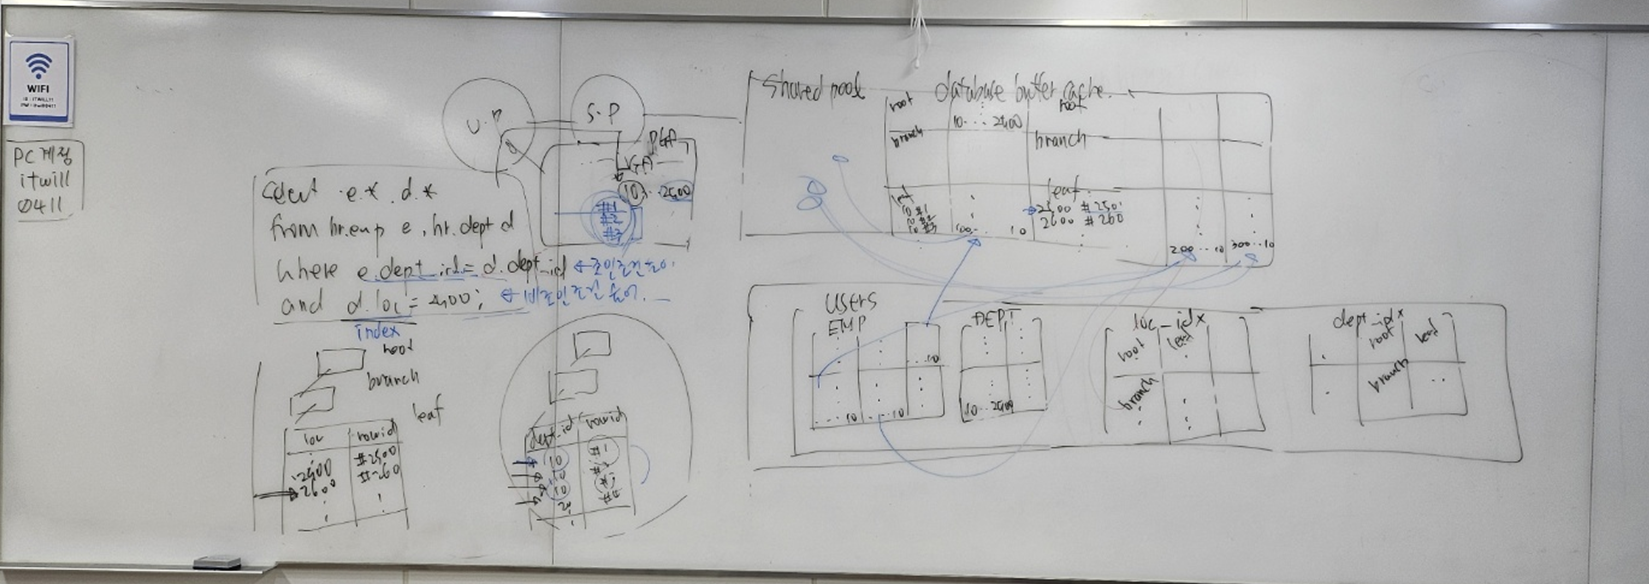 WIFI
PC계정
itwill
0411
U.P
S.P
PGA
UGA
10 .. 2500
#1
#2
#3
Select e.*, d.*
from hr.emp e, hr.dept d
where e.dept_id = d.dept_id ← 조인조건술어.
and d.loc = 2500; ← 비조인조건술어.
index
root
branch
leaf
loc rowid
2500 #2500
2600 #260
dept_id rowid
10 #1
10
10
20
Shared pool
database buffer cache
root
10 .. 2500
root
branch
branch
leaf
10 #1
100 .. 10
2500 #250
2600 #260
200 .. 10
300 .. 10
users
EMP
... 10
... 10
... 10
DEPT
10 .. 2500
loc_idx
root
leaf
branch
dept_idx
root
leaf
branch